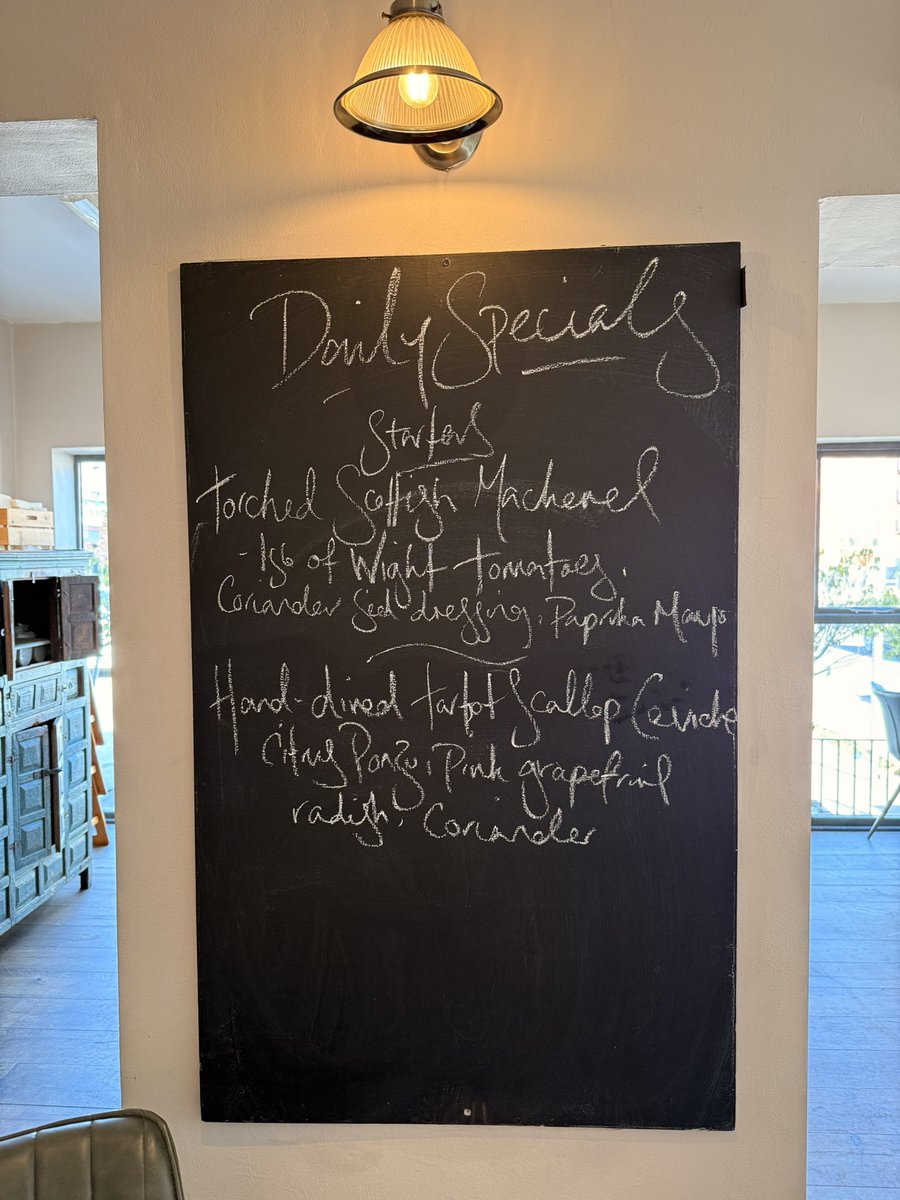 Daily Specials
Starters
Torched Scottish Mackerel
- Isle of Wight tomatoes,
Coriander Seed dressing, Paprika Mayo
Hand-dived tarbot Scallop Ceviche
Citrus Ponzu, Pink grapefruit
radish, Coriander